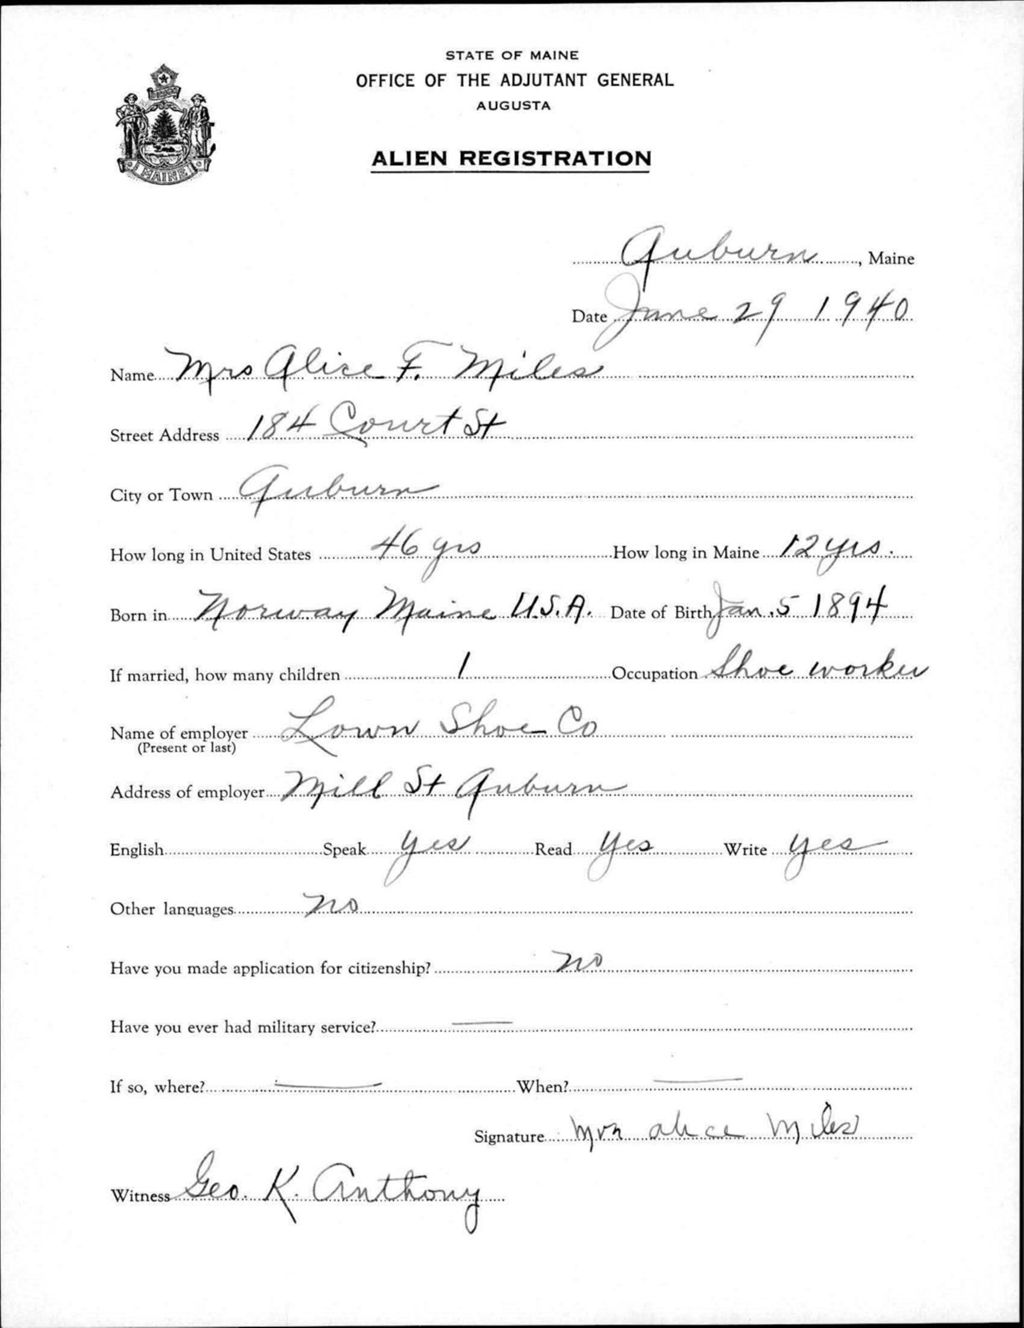 STATE OF MAINE
OFFICE OF THE ADJUTANT GENERAL
AUGUSTA
ALIEN REGISTRATION
MAINE
Auburn, Maine
Date June 29 1940
Name Mrs Alice F. Miles
Street Address 184 Court St
City or Town Auburn
How long in United States 46 yrs How long in Maine 12 yrs.
Born in Norway Maine U.S.A. Date of Birth Jan. 5 1894
If married, how many children 1 Occupation Shoe worker
Name of employer Lown Shoe Co
(Present or last)
Address of employer Mill St Auburn
English Speak yes Read Yes Write yes
Other languages no
Have you made application for citizenship? no
Have you ever had military service? —
If so, where? — When? —
Signature Mrs Alice Miles
Witness Geo. K. Anthony